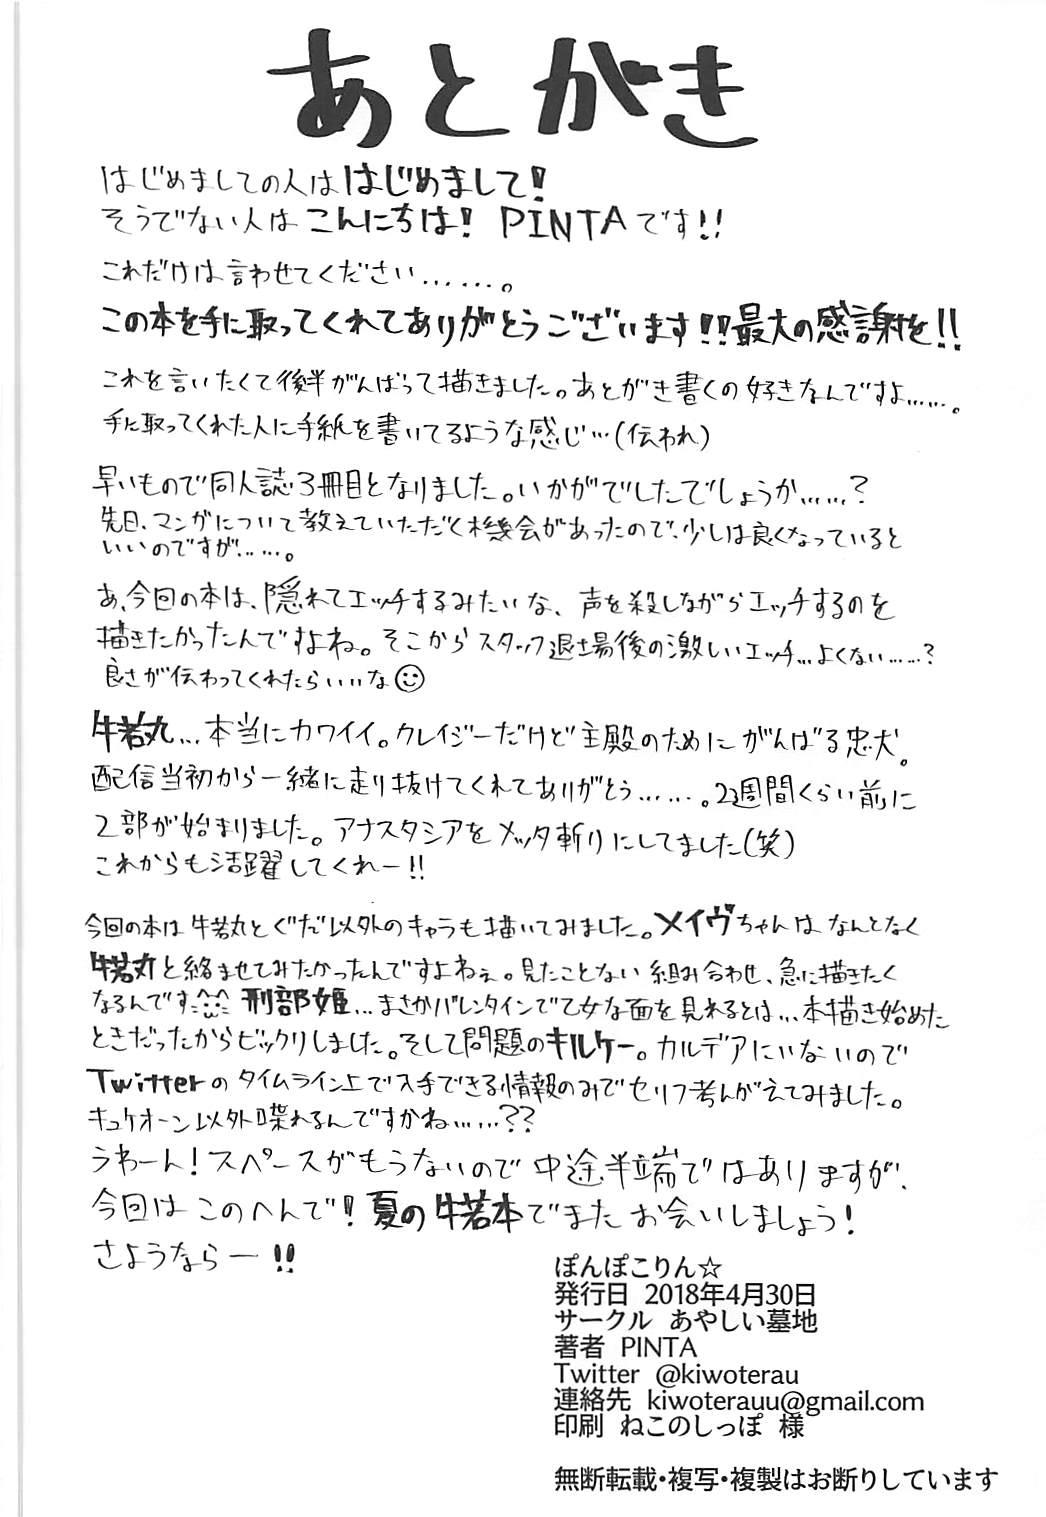 あとがき
はじめましての人ははじめまして!
そうでない人はこんにちは! PINTAです!!
これだけは言わせてください……。
この本を手に取ってくれてありがとうございます!!最大の感謝を!!
これを言いたくて後半がんばって描きました。あとがき書くの好きなんですよ……。
手に取ってくれた人に手紙を書いてるような感じ…(伝われ)
早いもので同人誌3冊目となりました。いかがでしたでしょうか……?
先日、マンガについて教えていただく機会があったので、少しは良くなっていると
いいのですが……。
あ、今回の本は、隠れてエッチするみたいな、声を殺しながらエッチするのを
描きたかったんですよね。そこからスタッフ退場後の激しいエッチ…よくない……?
良さが伝わってくれたらいいな☺
牛若丸…本当にカワイイ。クレイジーだけど主殿のためにがんばる忠犬。
配信当初から一緒に走り抜けてくれてありがとう……。2週間くらい前に
2部が始まりました。アナスタシアをメッタ斬りにしてました(笑)
これからも活躍してくれー!!
今回の本は牛若丸とぐだ以外のキャラも描いてみました。メイヴちゃんはなんとなく
牛若丸と絡ませてみたかったんですよねぇ。見たことない組み合わせ、急に描きたく
なるんです^^ 刑部姫…まさかバレンタインで乙女な面を見れるとは…本描き始めた
ときだったからビックリしました。そして問題のキルケー。カルデアにいないので
Twitterのタイムライン上で入手できる情報のみでセリフ考んがえてみました。
キュケオーン以外喋れるんですかね……??
うわーん!スペースがもうないので中途半端ではありますが、
今回はこのへんで!夏の牛若本でまたお会いしましょう!
さようならー!!
ぽんぽこりん☆
発行日 2018年4月30日
サークル あやしい墓地
著者 PINTA
Twitter @kiwoterau
連絡先 kiwoterauu@gmail.com
印刷 ねこのしっぽ 様
無断転載・複写・複製はお断りしています